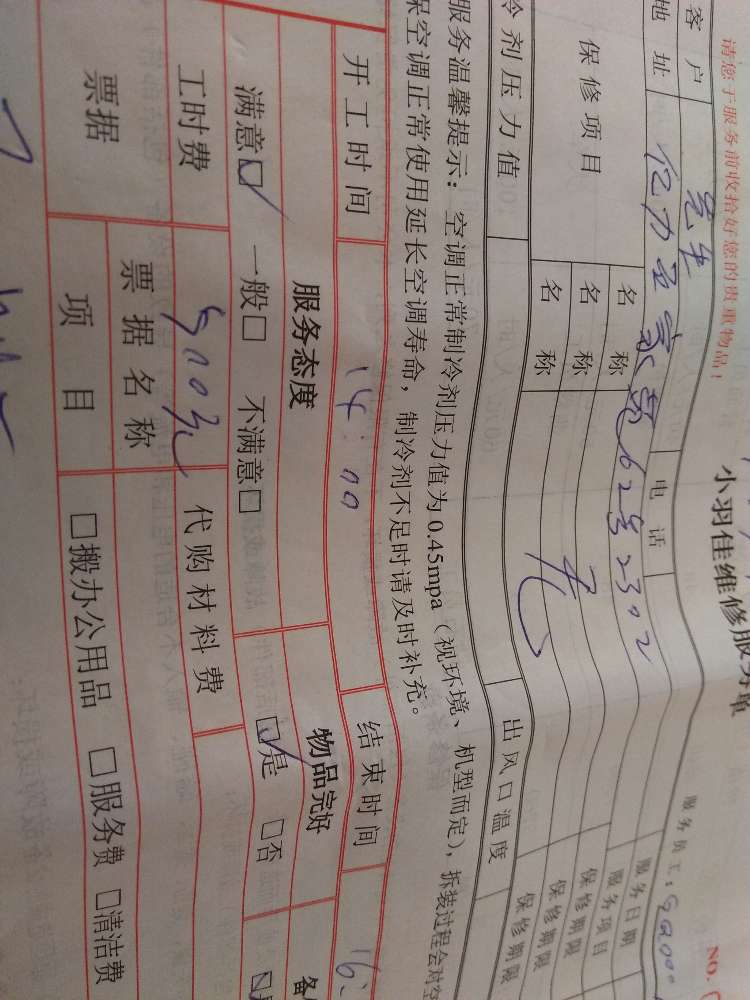 小羽佳维修服务单 NO.
请您于服务前收拾好您的贵重物品! 服务员工:
客户 先生 电话 服务日期
地址 亿力百家苑62号2302 服务项目
保修项目 名称 保修期限
名称 保修期限
名称 保修期限
冷剂压力值 出风口温度
服务温馨提示: 空调正常制冷剂压力值为0.45mpa(视环境、机型而定), 拆装过程会对空
保空调正常使用延长空调寿命, 制冷剂不足时请及时补充。
开工时间 14:00 结束时间 16:
服务态度 物品完好 备
满意☑ 一般□ 不满意□ ☑是 □否
工时费 500元 代购材料费
票据 票据名称
项目 □搬办公用品 □服务费 □清洁费